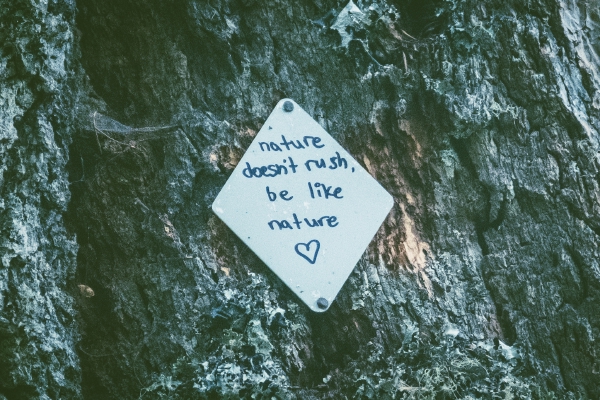 nature
doesn't rush,
be like
nature
♡